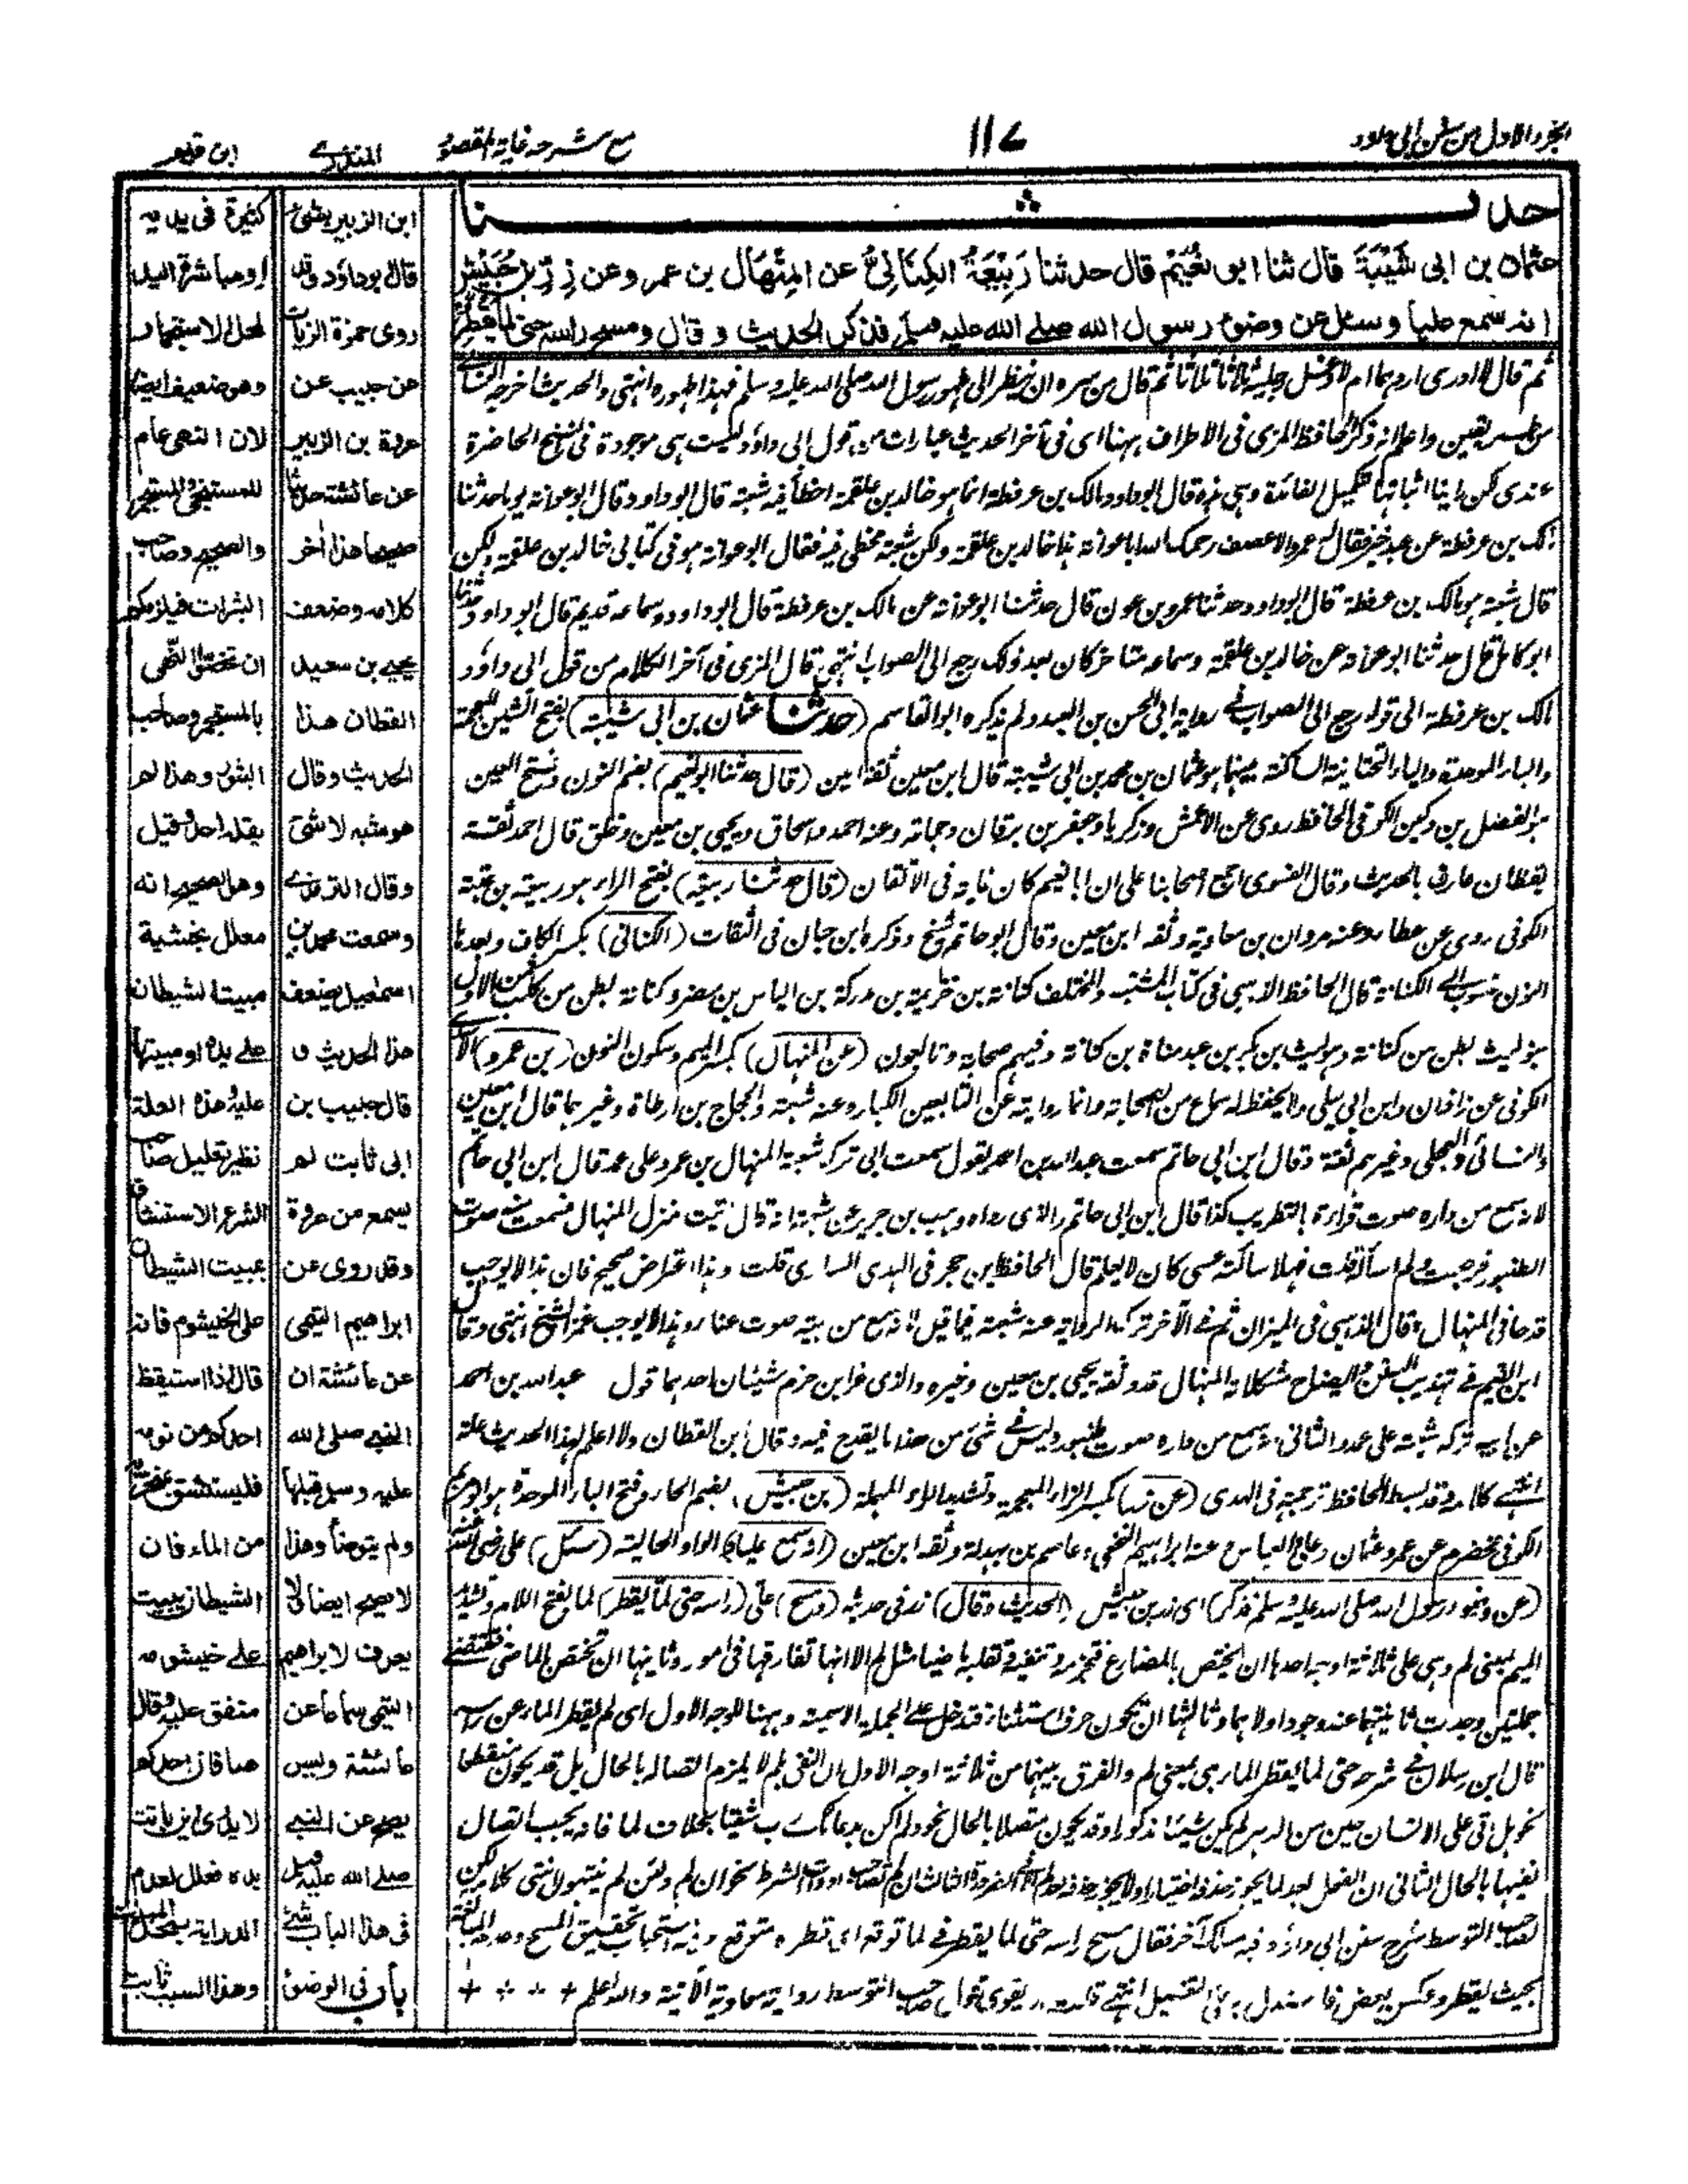 الجزء الاول من سنن ابی داود
١١٧
مع شرحه غاية المقصود
المنذري
ابن قيم
حدثنا
عثمان بن ابى شَيْبَةَ قال ثنا ابو نُعَيْمٍ قال حدثنا رَبِيْعَةُ الكِنَانِيُّ عن المِنْهَال بن عمرو عن زِرِّ بن حُبَيْشٍ
انه سمع عليا وسئل عن وضوء رسول الله صلى الله عليه وسلم فذكر الحديث وقال ومسح راسه حتى لما يقطر
ثم قال لا ادرى اردهما ام لا وغسل رجليه ثلاثا ثلاثا ثم قال من سره ان ينظر الى طهور رسول الله صلى الله عليه وسلم فهذا طهوره انتهى والحديث اخرجه النسائي
من طريقين واعلم انه ذكر الحافظ المزى فى الاطراف ههنا اى فى آخر الحديث عبارات من قول ابى داؤد ليست هى موجودة فى النسخ الحاضرة
عندى لكن راينا اثباتها تكميل الفائدة وهى هذه قال ابوداود ومالك بن عرفطة انما هو خالد بن علقمة اخطأ فيه شعبة قال ابوداود وقال ابوعوانة يوما حدثنا
مالك بن عرفطة عن عبد خير فقال له عمرو الاعصف رحمك الله ابا عوانة هذا خالد بن علقمة ولكن شعبة مخطى فيه فقال ابوعوانة هو فى كتابى خالد بن علقمة ولكن
قال شعبة هو مالك بن عرفطة قال ابوداود وحدثنا عمرو بن عون قال حدثنا ابوعوانة عن مالك بن عرفطة قال ابوداود وسماعه قديم قال ابوداود وحدثنا
ابو كامل قال حدثنا ابوعوانة عن خالد بن علقمة وسماعه متاخر كان بعد ذلك رجع الى الصواب انتهى قال المزى فى آخر الكلام من قول ابى داود
مالك بن عرفطة الى قوله رجع الى الصواب فى رواية ابى الحسن بن العبد ولم يذكره ابوالقاسم (حدثنا عثمان بن ابى شيبة) بفتح الشين المعجمة
والباء الموحدة والياء التحتانية الساكنة بينهما هو عثمان بن محمد بن ابى شيبة قال ابن معين ثقة امين (قال حدثنا ابونعيم) بضم النون وفتح العين
هو الفضل بن دكين الكوفى الحافظ روى عن الاعمش وزكريا وجعفر بن برقان وجماعة وعنه احمد واسحاق ويحيى بن معين وخلق قال احمد ثقة
يقظان عارف بالحديث وقال الفسوى اجمع اصحابنا على ان ابا نعيم كان غاية فى الاتقان (قال حدثنا ربيعة) بفتح الراء هو ربيعة بن عتبة
الكوفى روى عن عطاء وعنه مروان بن معاوية وثقه ابن معين وقال ابوحاتم شيخ وذكره ابن حبان فى الثقات (الكنانى) بكسر الكاف وبعدها
النون منسوب الى الكنانة قال الحافظ الذهبى فى كتاب المشتبه والمختلف كنانة بن خزيمة بن مدركة بن الياس بن مضر وكنانة لبطن من كلب فمن الاول
بنو ليث بطن من كنانة وهو ليث بن بكر بن عبد مناة بن كنانة وفيهم صحابة وتابعون (عن المنهال) بكسر الميم وسكون النون (بن عمرو)
الكوفى عن زاذان وابن ابى ليلى ولا يحفظ له سماع من الصحابة وانما روايته عن التابعين الكبار وعنه شعبة والحجاج بن ارطاة وغيرهما قال ابن معين
والنسائى والعجلى وغيرهم ثقة وقال ابن ابى حاتم سمعت عبد الله بن احمد يقول سمعت ابى ترك شعبة المنهال بن عمرو على عمد قال ابن ابى حاتم
لانه سمع من داره صوت قراءة بالتطريب كذا قال ابن ابى حاتم والذى رواه وهيب بن جرير عن شعبة انه قال اتيت منزل المنهال فسمعت منه صوت
الطنبور فرجعت ولم اسأله قلت فهلا سالته عسى كان لا يعلم قال الحافظ ابن حجر فى الهدى السارى قلت وهذا اعتراض صحيح فان هذا لا يوجب
قدحا فى المنهال وقال الذهبى فى الميزان ثم فى الآخر ترك الرواية عنه شعبة فيما قيل لانه سمع من بيته صوت غناء وهذا لا يوجب غمز الشيخ انتهى وقال
ابن القيم فى تهذيب السنن وايضاح مشكلاته المنهال قد وثقه يحيى بن معين وغيره والذى غر ابن حزم شيئان احدهما قول عبد الله بن احمد
عن ابيه تركه شعبة على عمد والثانى انه سمع من داره صوت طنبور وليس فى شئ من هذا ما يقدح فيه وقال ابن القطان ولا اعلم لهذا الحديث علة
انتهى كلامه وقد بسط الحافظ ترجمته فى الهدى (عن زر) بكسر الزاء المعجمة وتشديد الراء المهملة (بن حبيش) بضم الحاء وفتح الباء الموحدة هو ابو مريم
الكوفى مخضرم عن عمر وعثمان وعلى والعباس عنه ابراهيم النخعى وعاصم بن بهدلة وثقه ابن معين (انه سمع عليا) الواو الحالية (سئل) على رضى الله عنه
(عن وضوء رسول الله صلى الله عليه وسلم فذكر) اى زر بن حبيش (الحديث وقال) زر فى حديثه (ومسح) على (راسه حتى لما يقطر) لما بفتح اللام وتشديد
الميم بمعنى لم وهى على ثلاثة اوجه احدها ان يختص بالمضارع فتجزمه وتنفيه وتقلبه ماضيا مثل لم الا انها تفارقها فى امور وثانيها ان تختص بالماضى فتقتضى
جملتين وجدت ثانيتهما عند وجود اولاهما وثالثها ان تكون حرف استثناء فتدخل على الجملة الاسمية وههنا للوجه الاول اى لم يقطر الماء عن راسه
قال ابن رسلان فى شرحه حتى لما يقطر الماء هى بمعنى لم والفرق بينهما من ثلاثة اوجه الاول ان النفى بلم لا يلزم اتصاله بالحال بل قد يكون منقطعا
نحو هل اتى على الانسان حين من الدهر لم يكن شيئا مذكورا وقد يكون متصلا بالحال نحو ولم اكن بدعائك رب شقيا بخلاف لما فانه يجب اتصال
نفيها بالحال الثانى ان الفعل بعد لما يجوز حذفه اختيارا ولا يجوز حذفه بعد لم الا فى الضرورة الثالث ان لم تصاحب ادوات الشرط نحو ان لم ولئن لم ينتهوا انتهى كلامه لكن
لصاحب التوسط شرح سنن ابى داؤد فيه مسلك آخر فقال مسح راسه حتى لما يقطر فى لما توقع اى قطره متوقع وفيه استحباب تحقيق المسح وصاحب المبالغة
بحيث يقطر وعكس بعض انتهى قلت ويقوى قول صاحب التوسط رواية معاوية الآتية والله اعلم
ابن الزبير بشئ
قال ابوداؤد وقد
روى حمزة الزيات
عن حبيب عن
عروة بن الزبير
عن عائشة حديثا
صحيحا هذا آخر
كلامه وضعف
يحيى بن سعيد
القطان هذا
الحديث وقال
هو شبه لا شئ
وقال الترمذي
وسمعت محمد بن
اسمعيل يضعف
هذا الحديث و
قال حبيب بن
ابى ثابت لم
يسمع من عروة
وقد روى عن
ابراهيم التيمى
عن عائشة ان
النبي صلى الله
عليه وسلم قبلها
ولم يتوضأ وهذا
لا يصح ايضا لا
يعرف لابراهيم
التيمى سماعا عن
عائشة وليس
يصح عن النبي
صلى الله عليه وسلم
فى هذا الباب شئ
باب فى الوضوء
كثيرة فى يديه
او مباشرة اليد
لمحل الاستجمار
وهو ضعيف ايضا
لان النهى عام
للمستنجى والمستجمر
والصحيح وصاحب
البثرات فيلزمكم
ان تخصوا النهى
بالمستجمر وصاحب
البثور وهذا لم
يقله احد وقيل
وهو الصحيح انه
معلل بخشية
مبيت الشيطان
على يده او مبيتها
عليه وهذه العلة
نظير تعليل صاحب
الشرع الاستنشاق
بمبيت الشيطان
على الخيشوم فانه
قال اذا استيقظ
احدكم من نومه
فليستنشق بمنخريه
من الماء فان
الشيطان يبيت
على خيشومه
متفق عليه وقال
هنا فان احدكم
لا يدرى اين باتت
يده فعلل بعدم
الدراية بمحل المبيت
وهذا السبب ثابت